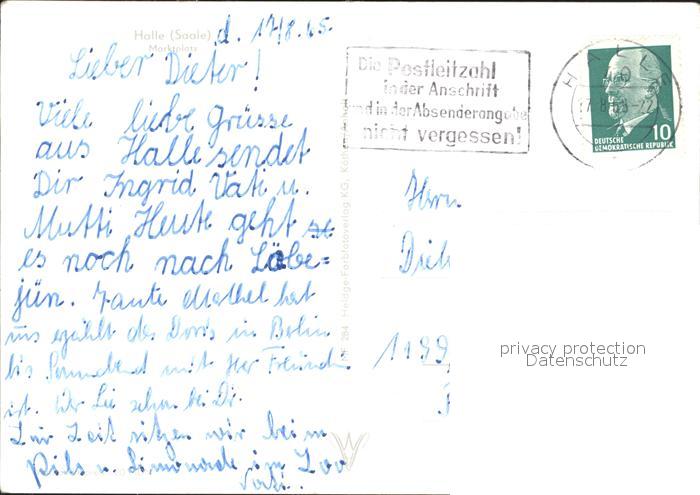 Halle (Saale)
Marktplatz
d. 17.8.65.
Lieber Dieter!
Viele liebe Grüsse
aus Halle sendet
Dir Ingrid Vati u.
Mutti Heute geht
es noch nach Löbe=
jün. Tante Mathel hat
uns erzählt das Doris in Berlin
bis Sonnabend mit Her Freundin
ist. War Sie schon bei Dir.
Zur Zeit sitzen wir beim
Pils u. Limonade im Zoo
Vati.
Die Postleitzahl
in der Anschrift
und in der Absenderangabe
nicht vergessen!
HALLE
10
DEUTSCHE
DEMOKRATISCHE REPUBLIK
Herrn
Diet
1199
privacy protection
Datenschutz